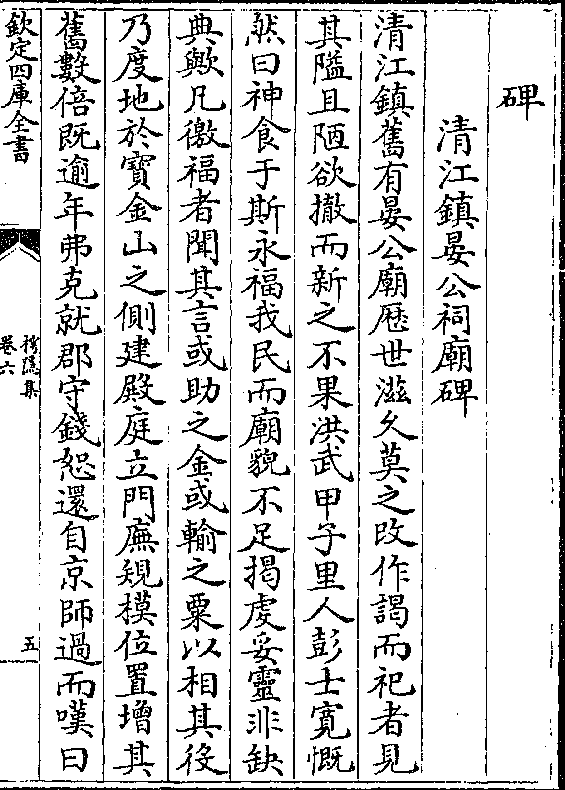 碑
清江鎮晏公祠廟碑
清江鎮舊有晏公廟歴世滋久莫之改作謁而祀者見
其隘且陋欲撤而新之不果洪武甲子里人彭士寛慨
然曰神食于斯永福我民而廟貌不足掲虔妥靈非缺
典歟凡徼福者聞其言或助之金或輸之粟以相其役
乃度地於寶金山之側建殿庭立門廡規模位置增其
舊數倍既逾年弗克就郡守錢恕還自京師過而嘆曰
欽定四庫全書
卷六
五